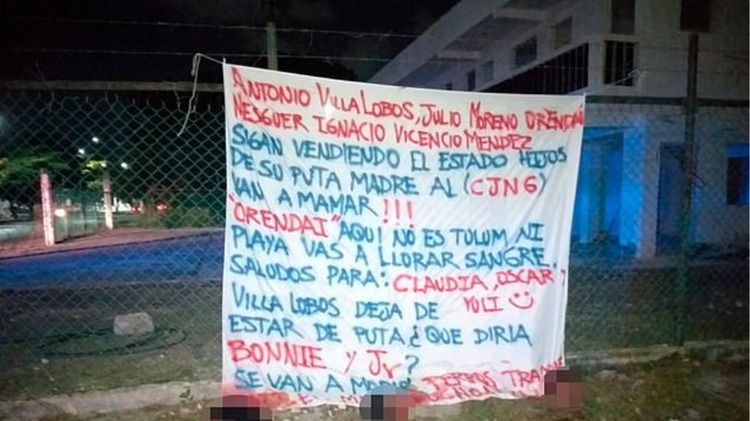 ANTONIO VILLALOBOS, JULIO MORENO ORENDAI
NESGUER IGNACIO VICENCIO MENDEZ
SIGAN VENDIENDO EL ESTADO HIJOS
DE SU PUTA MADRE AL (CJNG)
VAN A MAMAR!!!
"ORENDAI" AQUI NO ES TULUM, NI
PLAYA VAS A LLORAR SANGRE.
SALUDOS PARA: CLAUDIA, OSCAR Y
YULI
VILLALOBOS DEJA DE
ESTAR DE PUTA ¿QUE DIRIA
BONNIE Y Jr?
SE VAN A